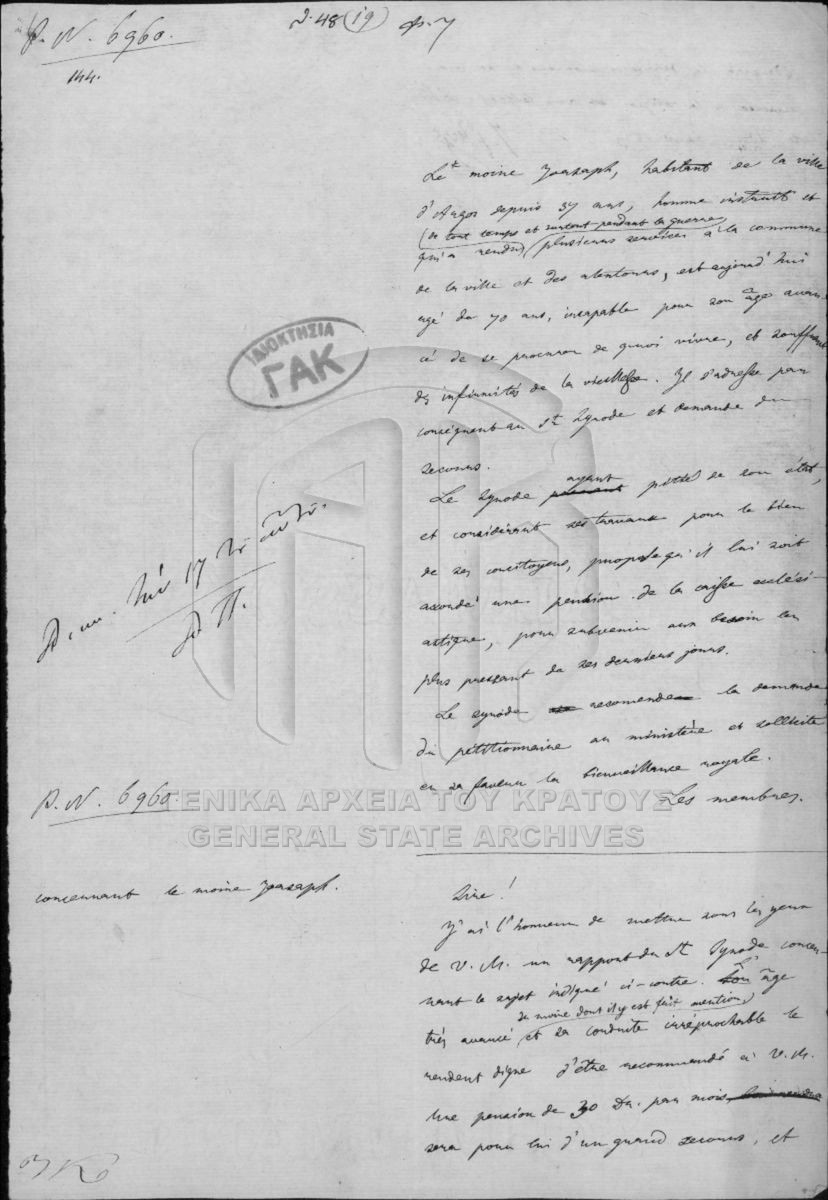 P. N. 6960.
144.
2.48 (19) φ.7
Le moine Joasaph, habitant de la ville
d'Argos depuis 37 ans, homme instruit et
(de tout temps et surtout pendant la guerre
qui a rendu plusieurs services à la commune
de la ville et des alentours, est aujourd'hui
agé du 70 ans, incapable pour son âge avan-
cé de se procurer de quoi vivre, et souffrant
des infirmités de la vieillesse. Il s'adresse par
conséquent au St Synode et demande du
secours.
Le Synode ayant pitié de son état,
et considérant ses travaux pour le bien
de ses concitoyens, propose qu'il lui soit
accordé une pension de la caisse ecclési-
astique, pour subvenir aux besoin les
plus pressant de ses derniers jours.
Le synode recomende la demande
du pétitionnaire au ministère et sollicite
en sa faveur la bienveillance royale.
Les membres.
ΙΔΙΟΚΤΗΣΙΑ
ΓΑΚ
17
P. N. 6960.
ΓΕΝΙΚΑ ΑΡΧΕΙΑ ΤΟΥ ΚΡΑΤΟΥΣ
GENERAL STATE ARCHIVES
concernant le moine Joasaph.
Sire!
J'ai l'honneur de mettre sous les yeux
de V. M. un rapport du St Synode concer-
nant le sujet indiqué ci-contre. L'âge
du moine dont il y est fait mention
très avancé et sa conduite irréprochable le
rendent digne d'être recommandé à V. M.
Une pension de 30 Dr. par mois
sera pour lui d'un grand secours, et